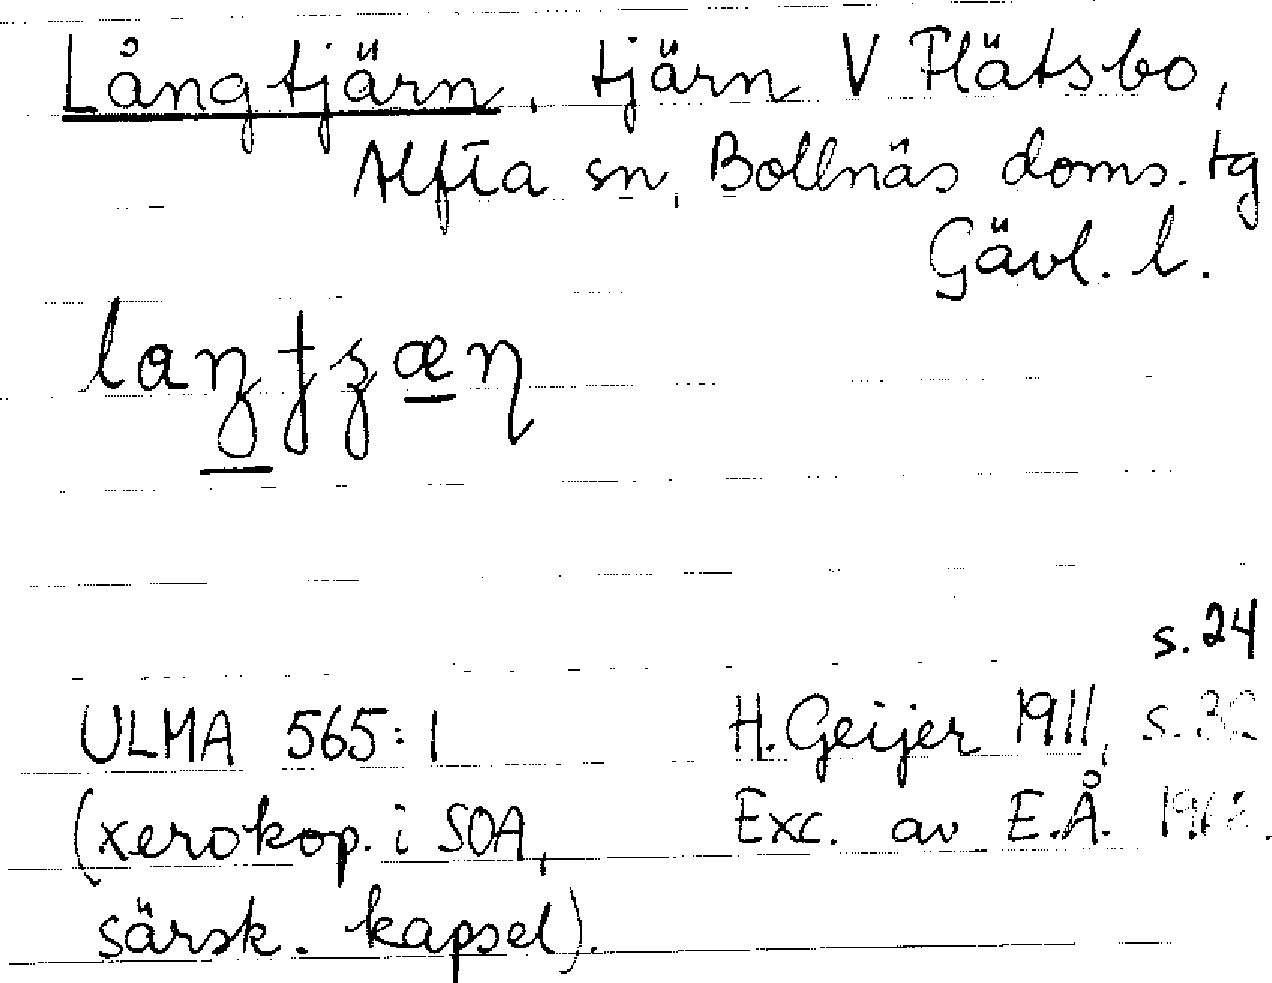 Långtjärn, tjärn V Flätsbo,
Alfta sn, Bollnäs doms. tg
Gävl. l.
s. 24
ULMA 565:1 H. Geijer 1911,
(xerokop. i SOA, Exc. av E.Å.
särsk. kapsel).